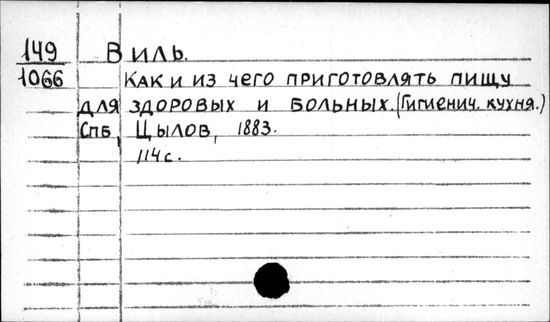 149 Виль.
1066 Как и из чего приготовлять пищу
для здоровых и больных. (Гигиенич. кухня.)
Спб, Цылов, 1883.
114 с.